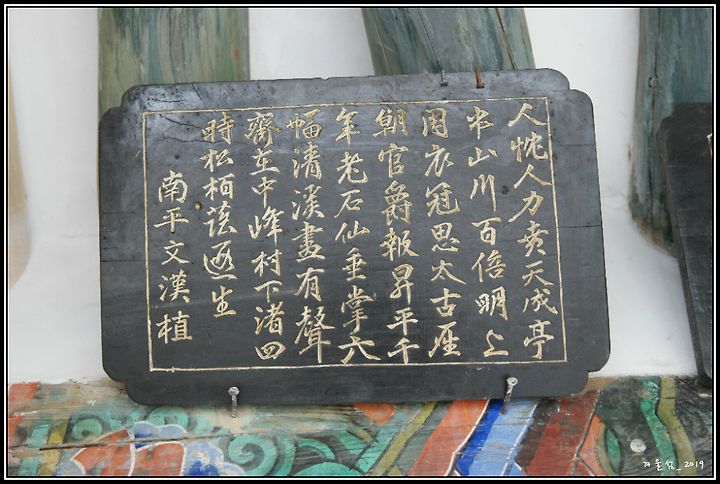 人恍人力奏天成亭
出山川百倍明上
国衣冠思太古歷
朝官爵報昇平千
年老石仙垂掌六
幅清溪畫有聲
齋在中峰村下渚四
時松栢該逓生
南平文漢植
겨울섬_2019